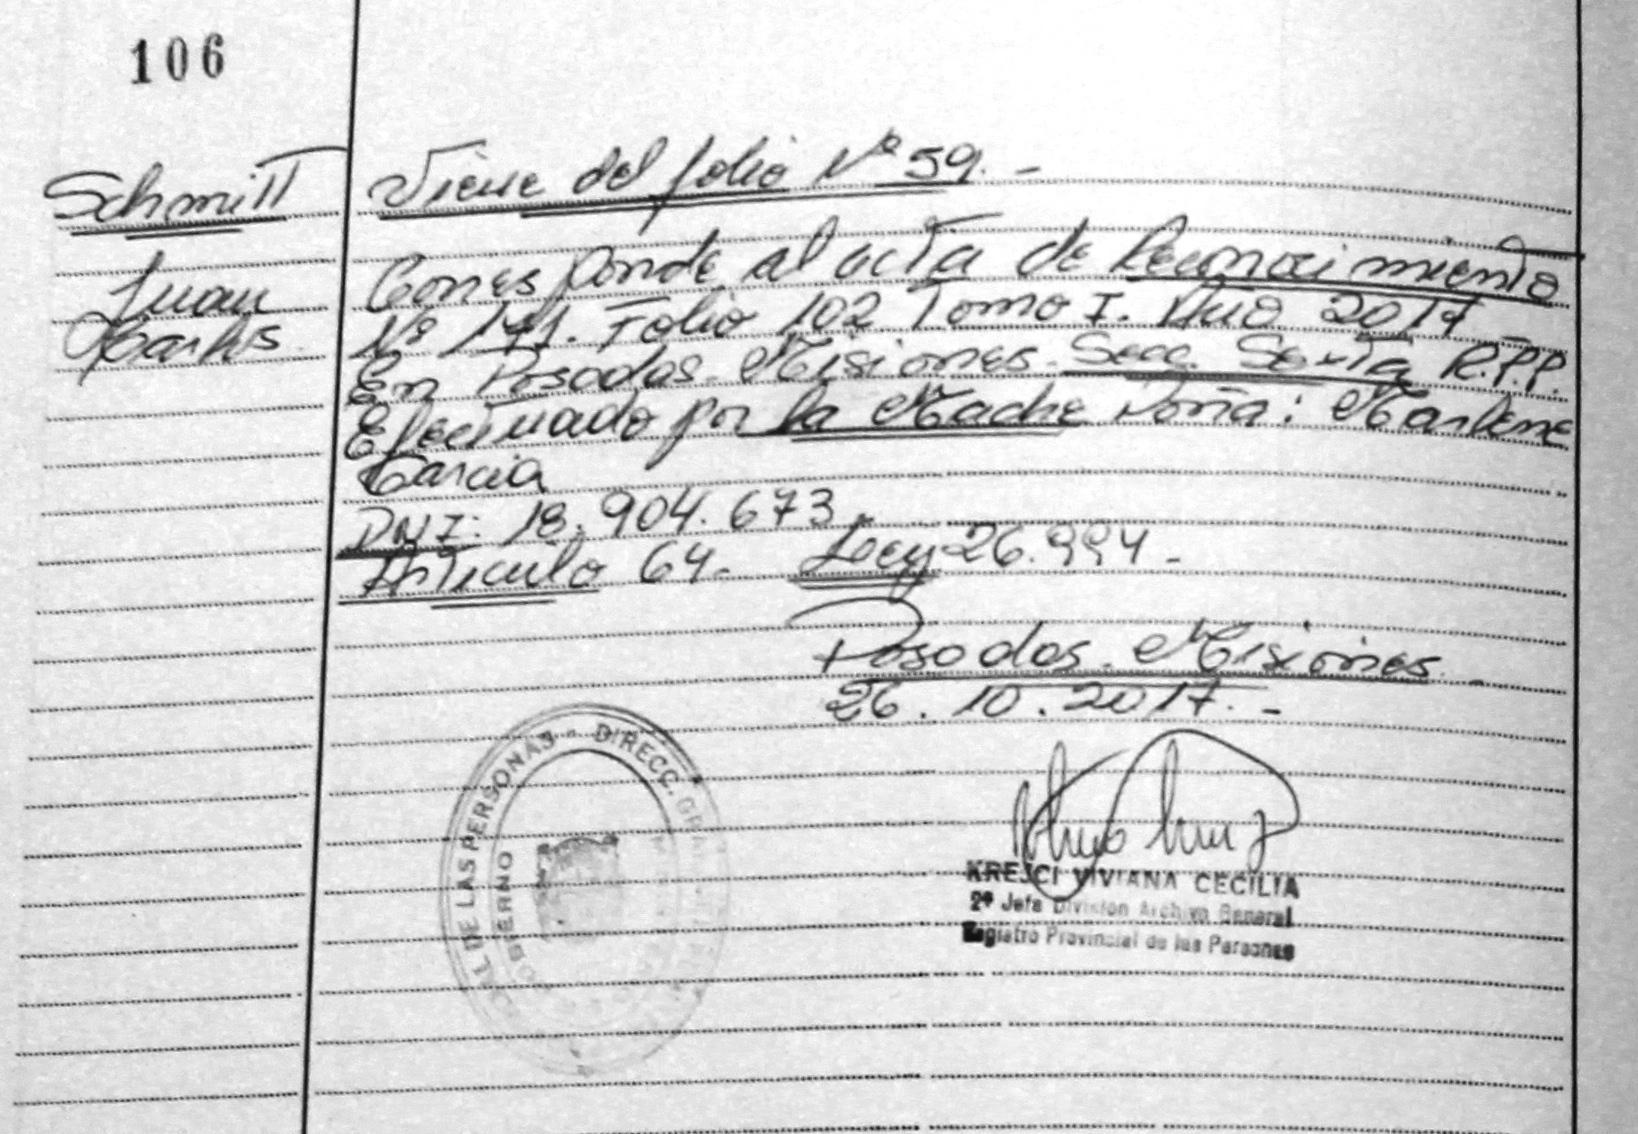 106
Schmitt
Juan
Carlos
Viene del folio Nº 59.-
Corresponde al acta de Reconocimiento
Nº 171. Folio 102 Tomo I. Año 2017
En Posadas. Misiones. Secc. Sexta R.P.P.
Efectuado por la Madre Doña: Marlene
Garcia
DNI: 18.904.673.
Articulo 64. Ley 26.994-
Posadas. Misiones.-
26.10.2017.-
DE LAS PERSONAS - DIRECC. GRAL.
GOBIERNO
KREJCI VIVIANA CECILIA
2º Jefa Division Archivo General
Registro Provincial de las Personas